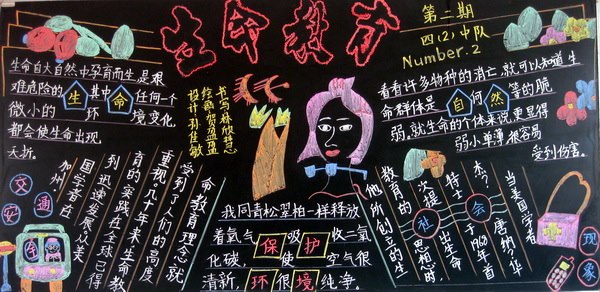 生命教育
第二期
四(2)中队
Number.2
生命自大自然中孕育而生是艰
难危险的 生 其中 命 任何一个
微小的 环境变化,
都会使生命出现
夭折。
书写林欣慧
绘画贺盈盈
设计孙佳敏
看看许多物种的消亡,就可以知道生
命群体是 自 何 然 等的脆
弱,就生命的个体来说更显得
弱小单薄很容易
受到伤害。
当美国学者
杰?唐纳?华
特士 会 于1968年首
次提 社 出生命
教育的思想时,
他所创立的生
命教育理念就
受到了人们的高度
重视。几十年来生命教
育的实践在全球已得
到迅速发展从美
国学者在
加州
我同青松翠柏一样释放
着氧气 保 吸 护 收二氧
化碳, 使 空气很
清新, 环 很 境 纯净。
交通
安全
现象